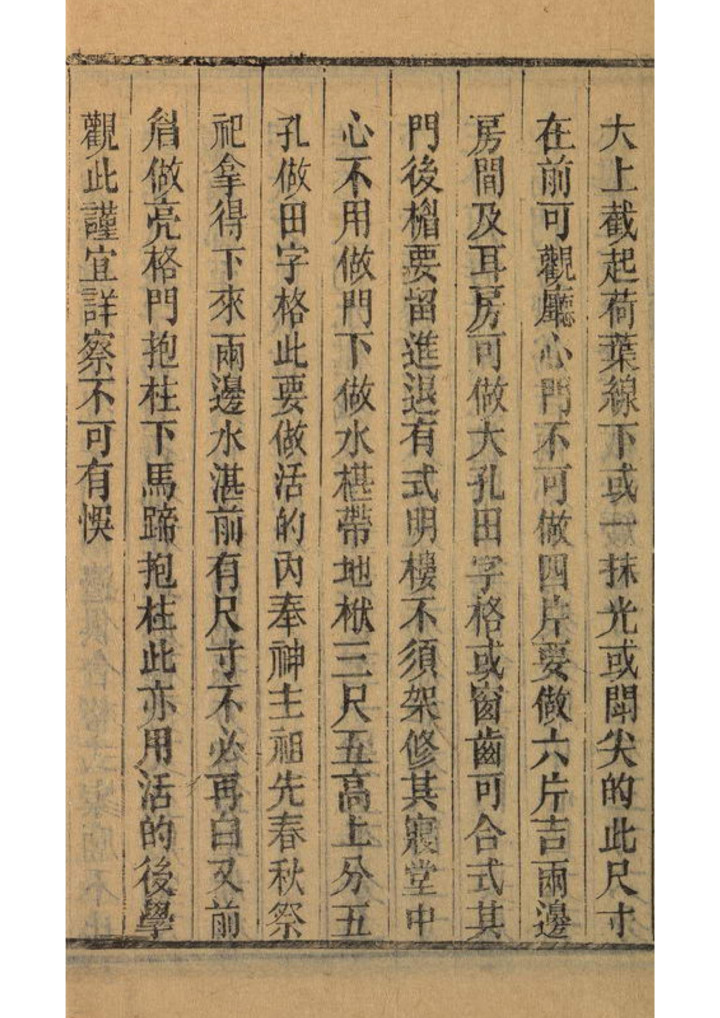 大上截起荷葉線下或一抹光或鬪尖的此尺寸
在前可觀廳心門不可做四片要做六片吉兩邊
房間及耳房可做大孔田字格或窗齒可合式其
門後楣要留進退有式明樓不須架修其寢堂中
心不用做門下做水椹帶地栿三尺五高上分五
孔做田字格此要做活的內奉神主祖先春秋祭
祀拿得下來兩邊水湛前有尺寸不必再白又前
眉做亮格門抱柱下馬蹄抱柱此亦用活的後學
觀此謹宜詳察不可有悞